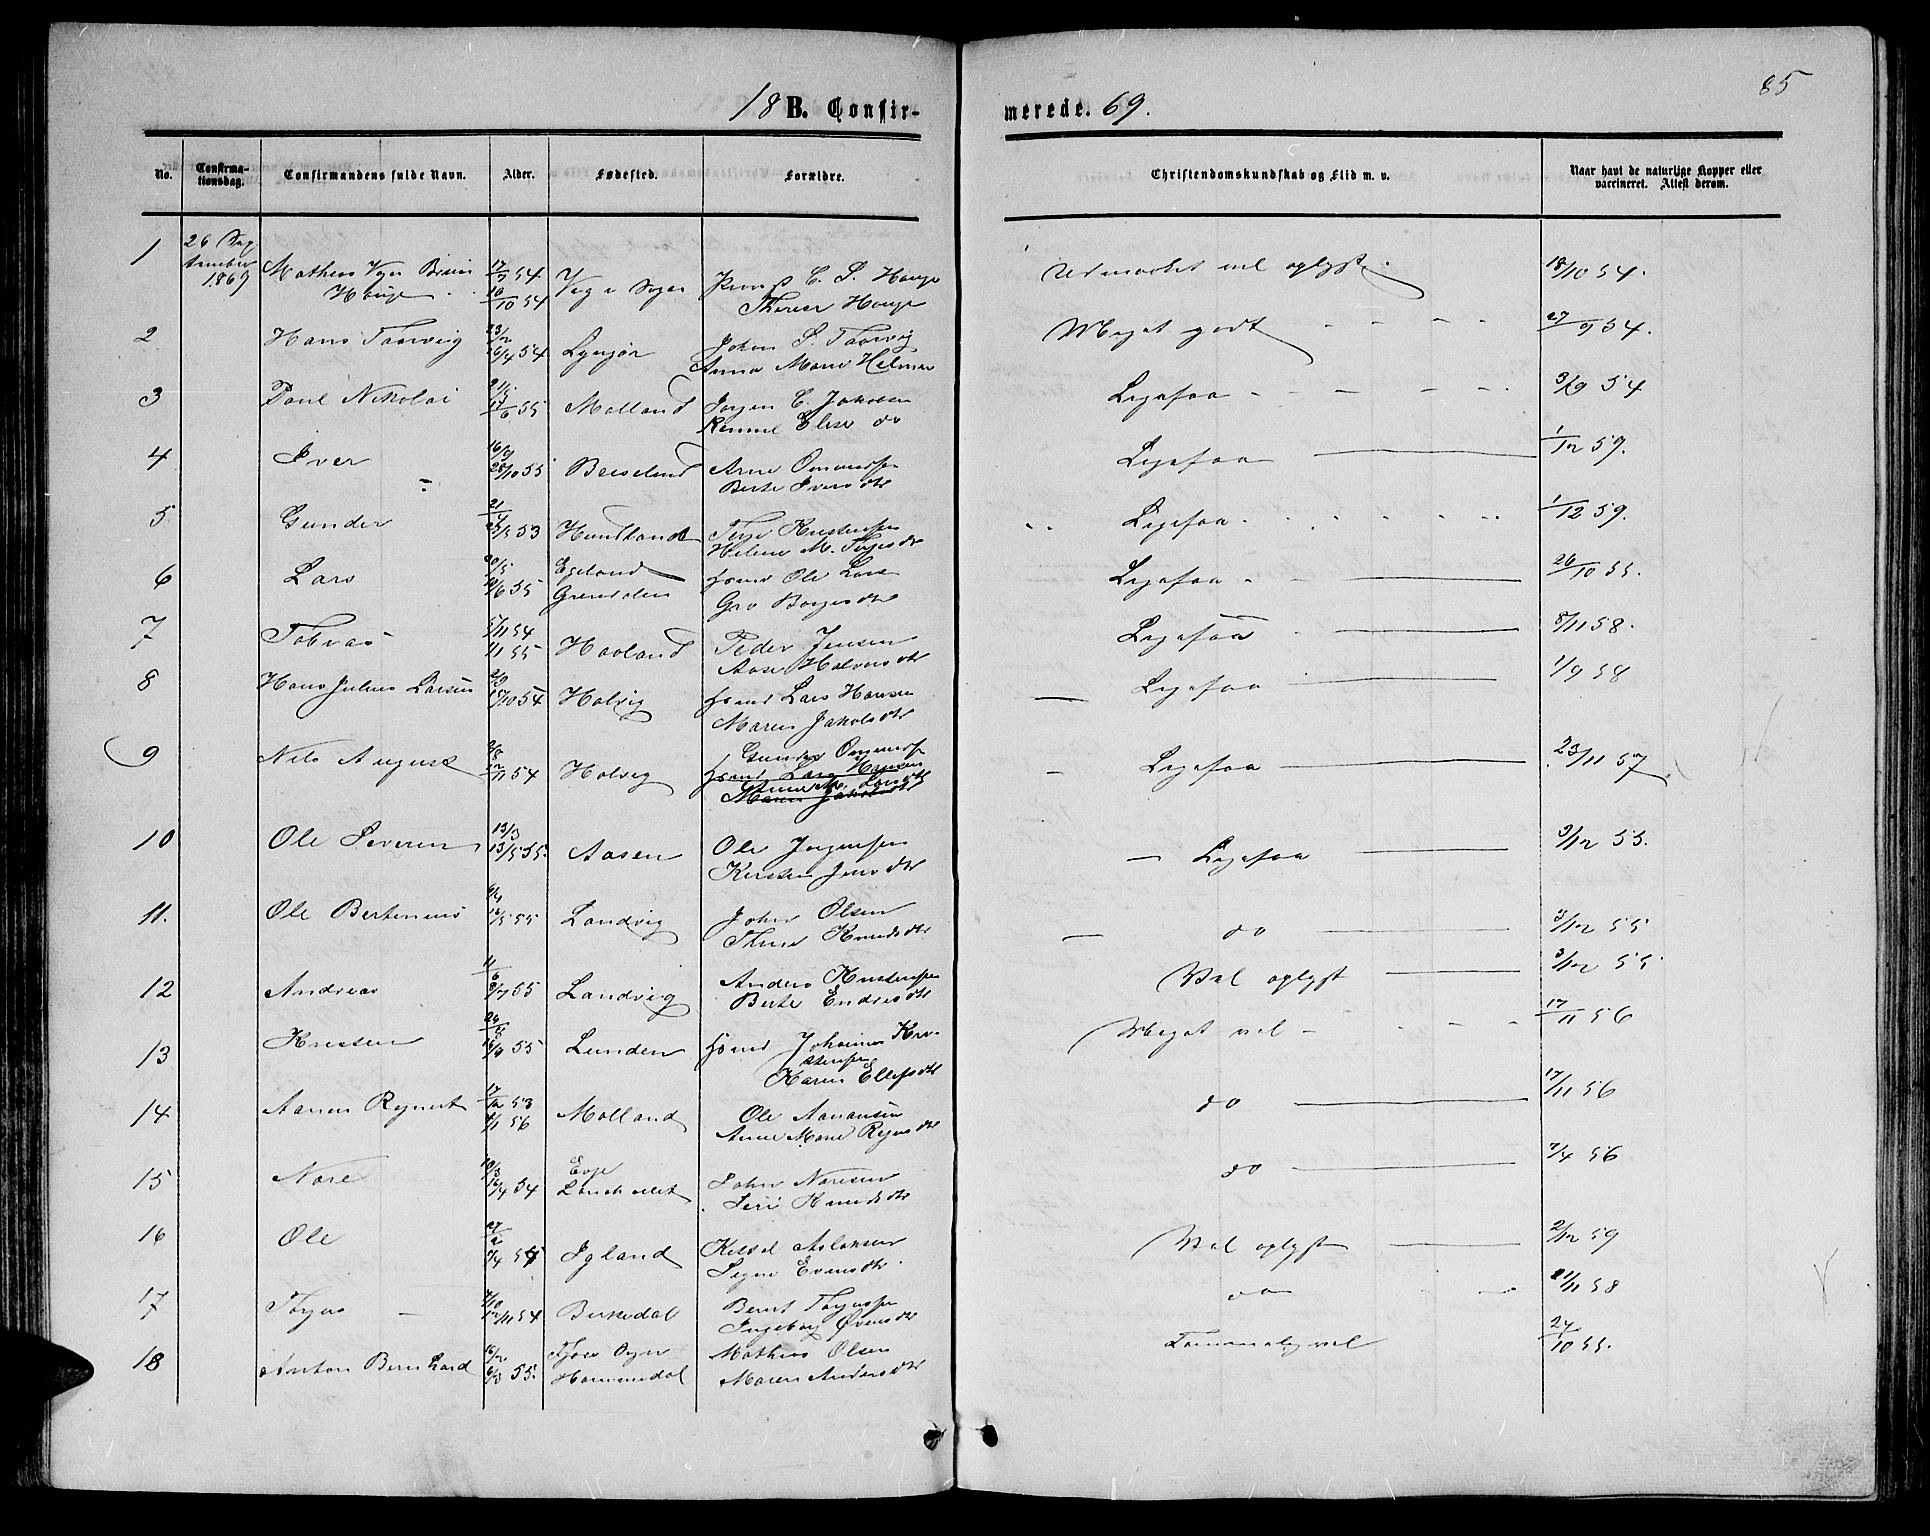 85
18 B. Confir- merede. 69.
No. Confirma-tionsdag. Confirmandens fulde Navn. Alder. Fødested. Forældre. Christendomskundskab og Flid m. v. Naar havt de naturlige Kopper eller vaccineret. Attest derom.
1 26 Sep tember 1869 Mathias Bruun Hauge 17/9 54 10/10 54 Provst C. S. Hauge Therese Hauge Udmærket vel oplyst 18/10 54.
2 Hans Taarvig 26/4 54 Lyngør Johan S. Taarvig Anna Marie Meget godt 27/9 54.
3 Paul Nikolai 17/6 55 Molland Jørgen C. Jakobsen Elise do Ligesaa 3/9 54
4 Iver 16/9 28/10 55 Beiseland Arne Ommundsen Berte Iversdtr Ligesaa 1/12 59.
5 Gunder 53 Hundland Terje Kristensen Helene M. Terjesdtr Ligesaa 1/12 59.
6 Lars 20/5 10/6 55 Egeland Grimdalen Hmd Ole Lars Gro Børgesdtr Ligesaa 26/10 55.
7 Tobias 5/11 54 1/1 55 Haaland Peder Jensen Aase Halvorsdtr Ligesaa 8/11 58.
8 Hans Julius Larsen 15/10 54 Holvig Hmd Lars Hansen Maren Jakobsdtr Ligesaa 1/9 58
9 Nils August 12/11 54 Holvig Gunder Ommundsen Hmd Lars Hansen Anne M. Larsdtr Maren Jakobsdtr Ligesaa 23/11 57
10 Ole Severin 13/3 13/5 55. Aasen Ole Jørgensen Kirsten Jensdtr Ligesaa 3/12 55.
11. Ole Bertinius 16/5 55 Landvig John Olsen Thine Knudsdtr do 3/12 55
12 Andreas 11/6 8/7 55 Landvig Anders Kristensen Berte Endresdtr Vel oplyst 3/12 55
13 Kristen 16/9 55 Lunden Hmd Johannes Kri- stensen Karen Ellefsdtr Meget vel 17/11 56
14 Aanen Reinert 17/12 53 1/1 56 Molland Ole Aanansen Anne Marie do 17/11 56
15 Nare 19/3 16/4 54 Evje John Naresen Siri Knudsdtr do 7/4 56
16 Ole 27/2 Igland Kittel Aslaksen Signe Evensdtr Vel oplyst 2/12 59
17 Torjus 7/10 12/11 54 Birkedal Bernt Torjussen Ingeborg Øvensdtr do 21/11 58
18 Anton Bernhard 55. Hommedal Mathias Olsen Maren Andersdtr Temmelig vel 24/10 55.